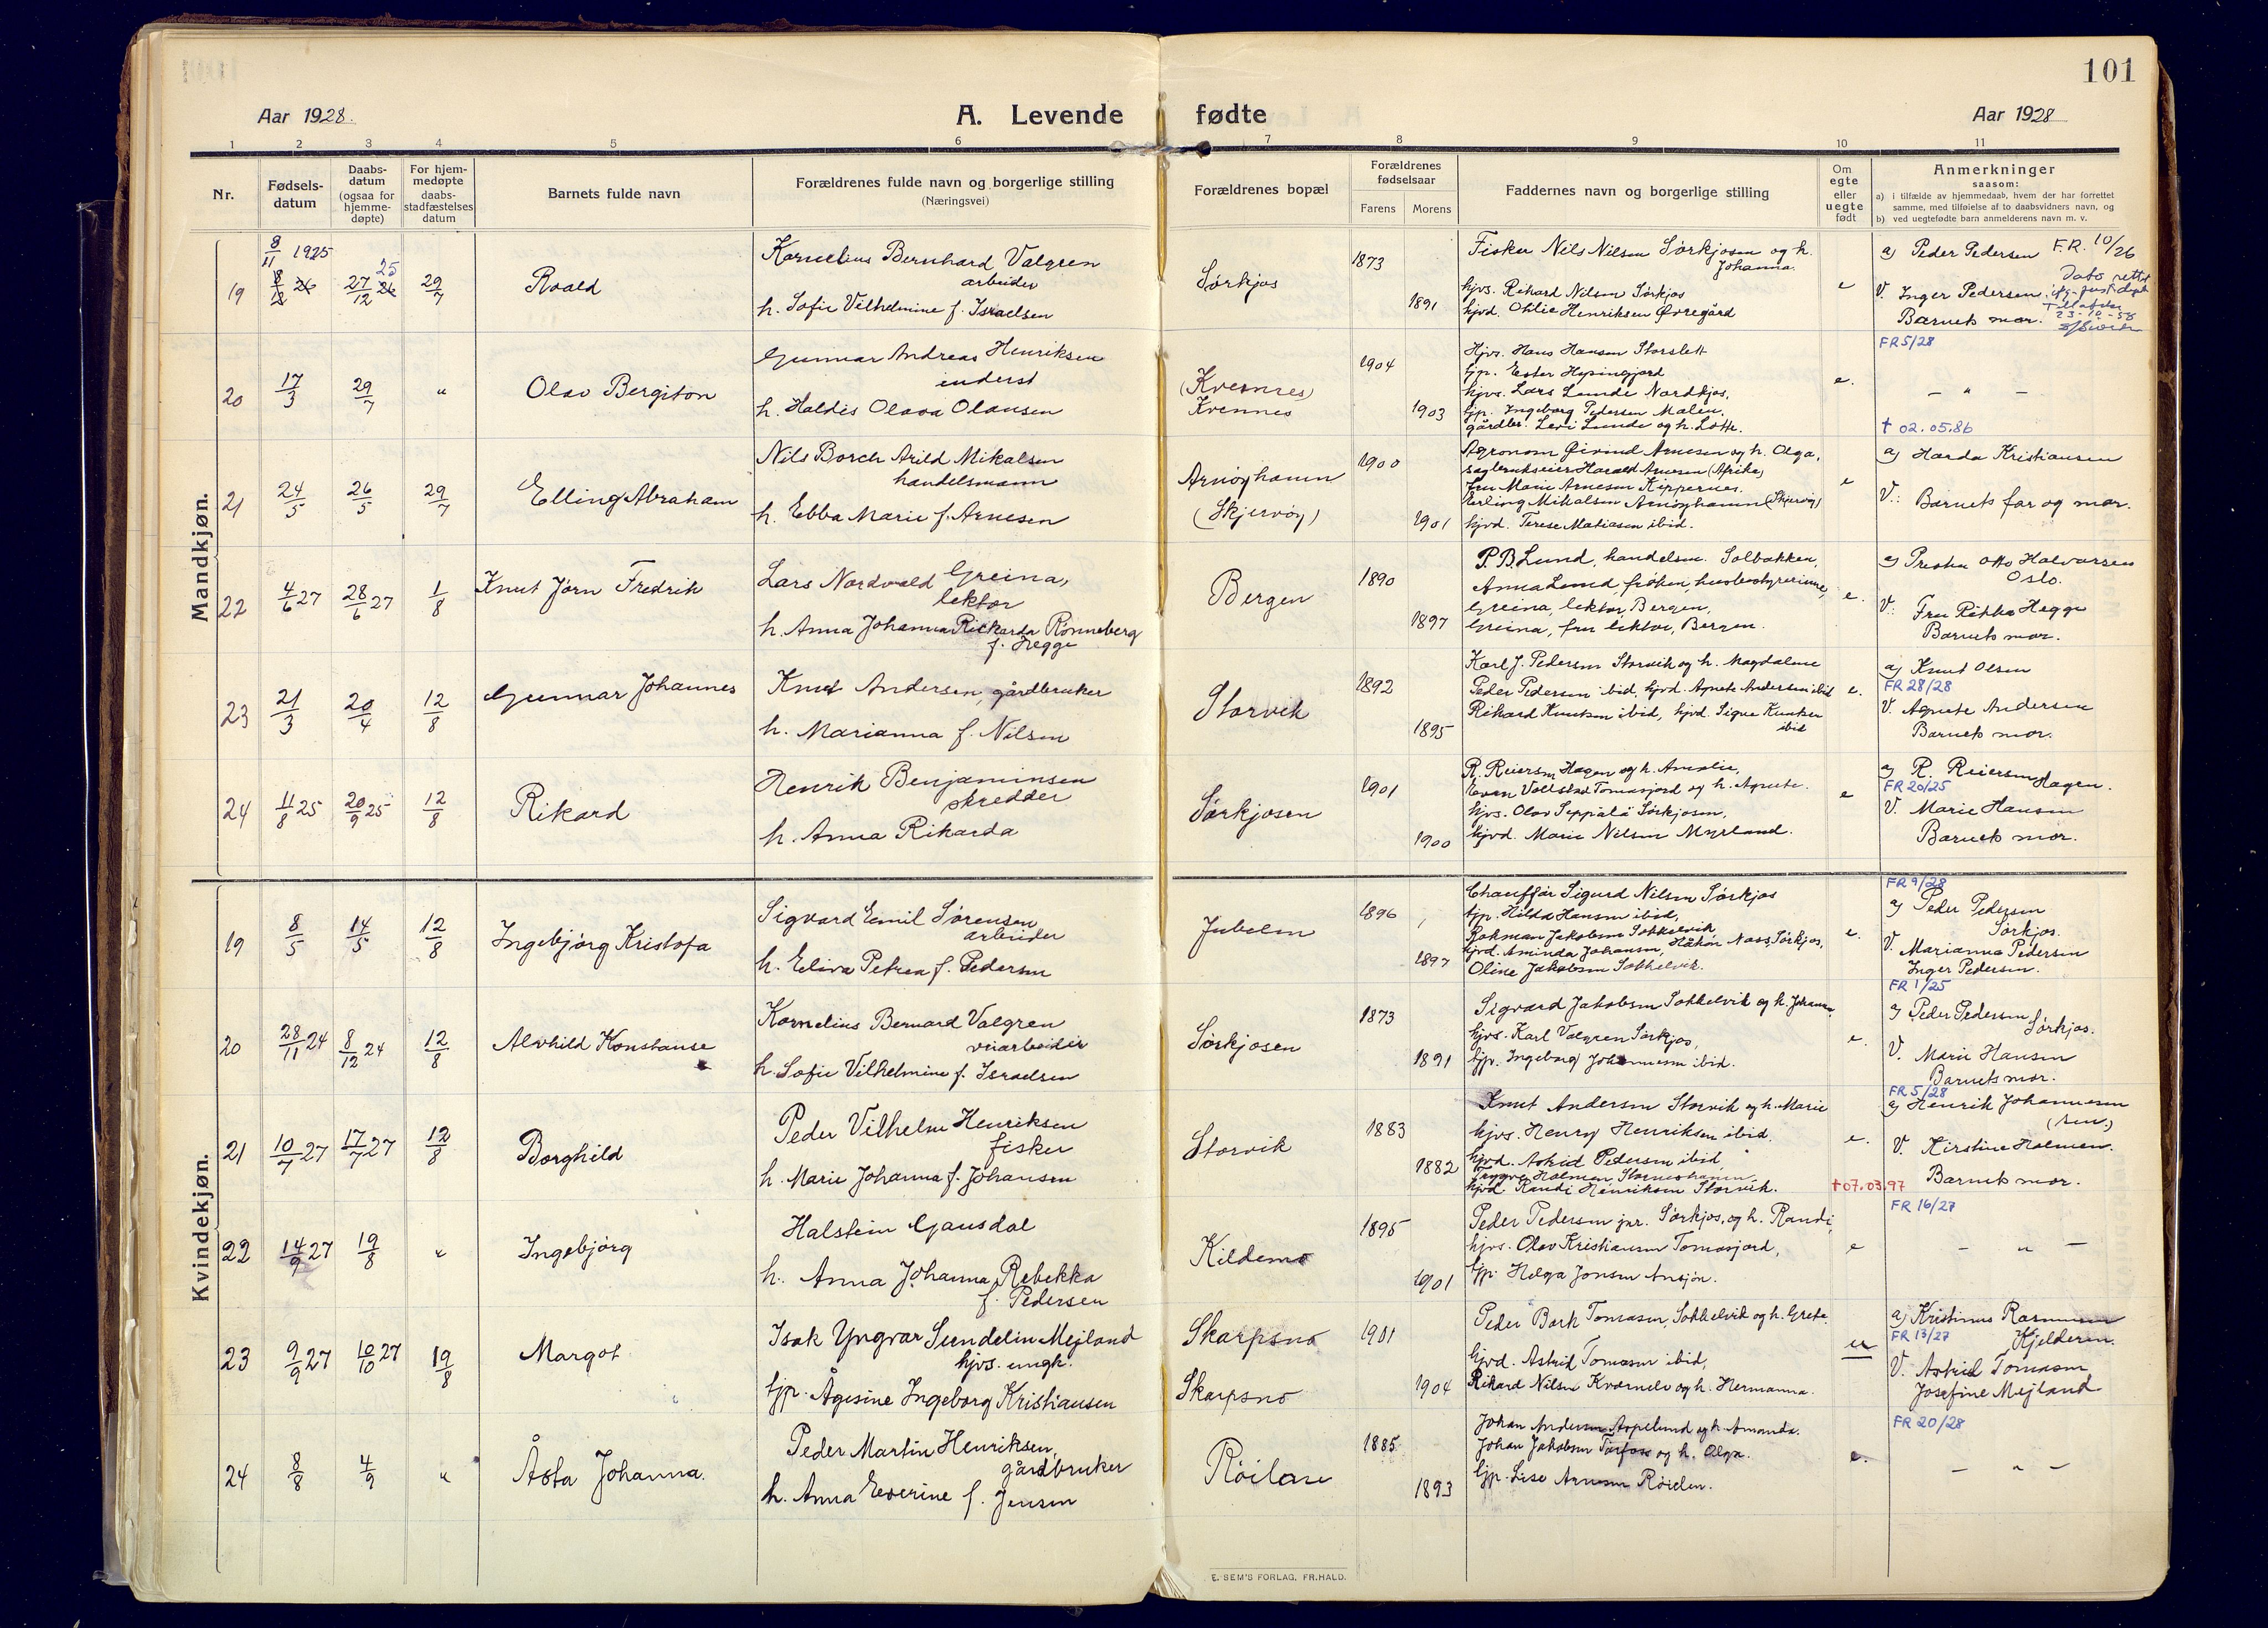 101
Aar 1928.
A. Levende fødte
Aar 1928
1 2 3 4 5 6 7 8 9 10 11
Nr.
Fødsels-
datum
Daabs-
datum
(ogsaa for
hjemme-
døpte)
For hjem-
medøpte
daabs-
stadfæstelses
datum
Barnets fulde navn
Forældrenes fulde navn og borgerlige stilling
(Næringsvei)
Forældrenes bopæl
Forældrenes
fødselsaar
Farens Morens
Faddernes navn og borgerlige stilling
Om
egte
eller
uegte
født
Anmerkninger
saasom:
a) i tilfælde av hjemmedaab, hvem der har forrettet
samme, med tilføielse af to daabsvidners navn, og
b) ved uegtefødte barn anmelderens navn m. v.
Mandkjøn.
19
8/11 1925
8/12 26
27/12 26 25
29/7
Roald
Kornelius Bernhard Valgren
arbeider
h. Sofie Vilhelmine f. Israelsen
Sørkjos
1873
1891
Fisker Nils Nilsen Sørkjosen og h.
Johanna.
hjvs. Rikard Nilsen Sørkjos
hjvd. Ohlie Henriksen Øvregård
e
a) Peder Pedersen F.R. 10/26
V. Inger Pedersen
Barnets mor.
Dato rettet
23-10-58
20
17/3
29/7
"
Olav Bergiton
Gunnar Andreas Henriksen
inderst
h. Haldis Olava Olausen
(Kvennes)
Kvennes
1904
1903
Hjvs. Hans Hansen Storslett
tjp. Ester Hysingjord
hjvs. Lars Lunde Nordkjos,
tjp. Ingeborg Pedersen Målen,
gårdbr. Levi Lunde og h. Lotte.
e.
FR 5/28
– " –
† 02.05.86
21
24/5
26/5
29/7
Elling Abraham
Nils Borch Arild Mikalsen
handelsmann
h. Ebba Marie f. Arnesen
Arnøyhamn
(Skjervøy)
1900
1901
Agronom Øivind Arnesen og h. Olga,
sagbrukseier Harald Arnesen (Afrika)
fru Marie Arnesen Kippernes.
Erling Mikalsen Arnøyhamn (Skjervøy)
hjvd. Terese Matiasen ibid.
e
a) Harda Kristiansen
V.: Barnets far og mor.
22
4/6 27
28/6 27
1/8
Knut Jørn Fredrik
Lars Nordvald Greina,
lektor
h. Anna Johanna Rickarda Rønneberg
f. Hegge
Bergen
1890
1897
P.B. Lund, handelsm. Solbakken,
Anna Lund, frøken, husbestyrerinne,
Greina, lektor, Bergen,
Greina, fru lektor, Bergen.
e.
a) Presten Otto Halvorsen
Oslo.
V: Fru Rikka Hegge
Barnets mor.
23
21/3
20/4
12/8
Gunnar Johannes
Knut Andersen, gårdbruker
h. Marianna f. Nilsen
Storvik
1892
1895
Karl J. Pedersen Storvik og h. Magdalene
Peder Pedersen ibid, hjvd. Agnete Andersen ibid
Rikard Knutsen ibid, hjvd. Signe Knutsen
ibid
e.
a) Knut Olsen
FR 28/28
V. Agnete Andersen
Barnets mor.
24
11/8 25
20/9 25
12/8
Rikard
Henrik Benjaminsen
skredder
h. Anna Rikarda
Sørkjosen
1901
1900
R. Reiersen Hagen og h. Amalie,
Even Vollstad Tomasjord og h. Agnete.
hjvs. Olav Seppälä Sørkjosen,
hjvd. Marie Nilsen Myrland.
e
a) R. Reiersen Hagen.
FR 20/25
V. Marie Hansen
Barnets mor.
Kvindekjøn.
19
8/5
14/5
12/8
Ingebjørg Kristofa
Sigvard Emil Sørensen
arbeider
h. Eliva Petrea f. Pedersen
Jubelen
1896
1897
Chauffør Sigurd Nilsen Sørkjos
tjp. Hilda Hansen ibid,
Hjohman Jakobsen Sokkelvik
hjvd. Aminda Johansen, Håkon Nass, Sørkjos,
Oline Jakobsen Sokkelvik.
e.
FR 9/28
a) Peder Pedersen
Sørkjos.
V. Marianna Pedersen
Inger Pedersen.
20
28/11 24
8/12 24
12/8
Alvhild Konstanse
Kornelius Bernard Valgren
veiarbeider
h. Sofie Vilhelmine f. Israelsen
Sørkjosen
1873
1891
Sigvard Jakobsen Sokkelvik og h. Johanna,
hjvs. Karl Valgren Sørkjos,
tjp. Ingeborg Johannesen ibid.
e.
FR 1/25
a) Peder Pedersen
Sørkjos.
V. Marie Hansen
Barnets mor.
21
10/7 27
17/7 27
12/8
Borghild
Peder Vilhelm Henriksen
fisker
h. Marie Johanna f. Johansen
Storvik
1883
1882
Knut Andersen Storvik og h. Marie
hjvs. Henry Henriksen ibid.
hjvd. Astrid Pedersen ibid,
Trygve Holmen Storneshamn,
hjvd. Randi Henriksen Storvik.
e.
†07.03.97
FR 5/28
a) Henrik Johannesen
(sen.)
V. Kirstine Holmen.
Barnets mor.
22
14/9 27
19/8
"
Ingebjørg
Halstein Gausdal
h. Anna Johanna Rebekka
f. Pedersen
Kildemo
1895
1901
Peder Pedersen jnr. Sørkjos, og h. Randi,
hjvs. Olav Kristiansen Tomasjord,
tjp. Helga Jonsen Ansjøn.
e
FR 16/27
– " –
23
9/9 27
10/10 27
19/8
Margot
Isak Yngvar Sundelin Mejland
hjvs. ungk.
tjp. Ågesine Ingeborg Kristiansen
Skarpsno
Skarpsno
1901
1904
Peder Bark Tomasen, Sokkelvik og h. Grete.
hjvd. Astrid Tomasen ibid,
Rikard Nilsen Kvænnelv og h. Hermanna.
u
a) Kristinus Rasmussen
FR 13/27
Kjelderen.
V. Astrid Tomasen
Josefine Mejland
24
8/8
4/9
"
Åsta Johanna.
Peder Martin Henriksen,
gårdbruker
h. Anna Everine f. Jensen
Røilan
1885
1893
Johan Andersen Aspelund og h. Amanda.
Johan Jakobsen Tørfoss og h. Olga.
tjp. Lise Arnesen Røielen.
e.
FR 20/28
– " –
E. SEM'S FORLAG, FR.HALD.